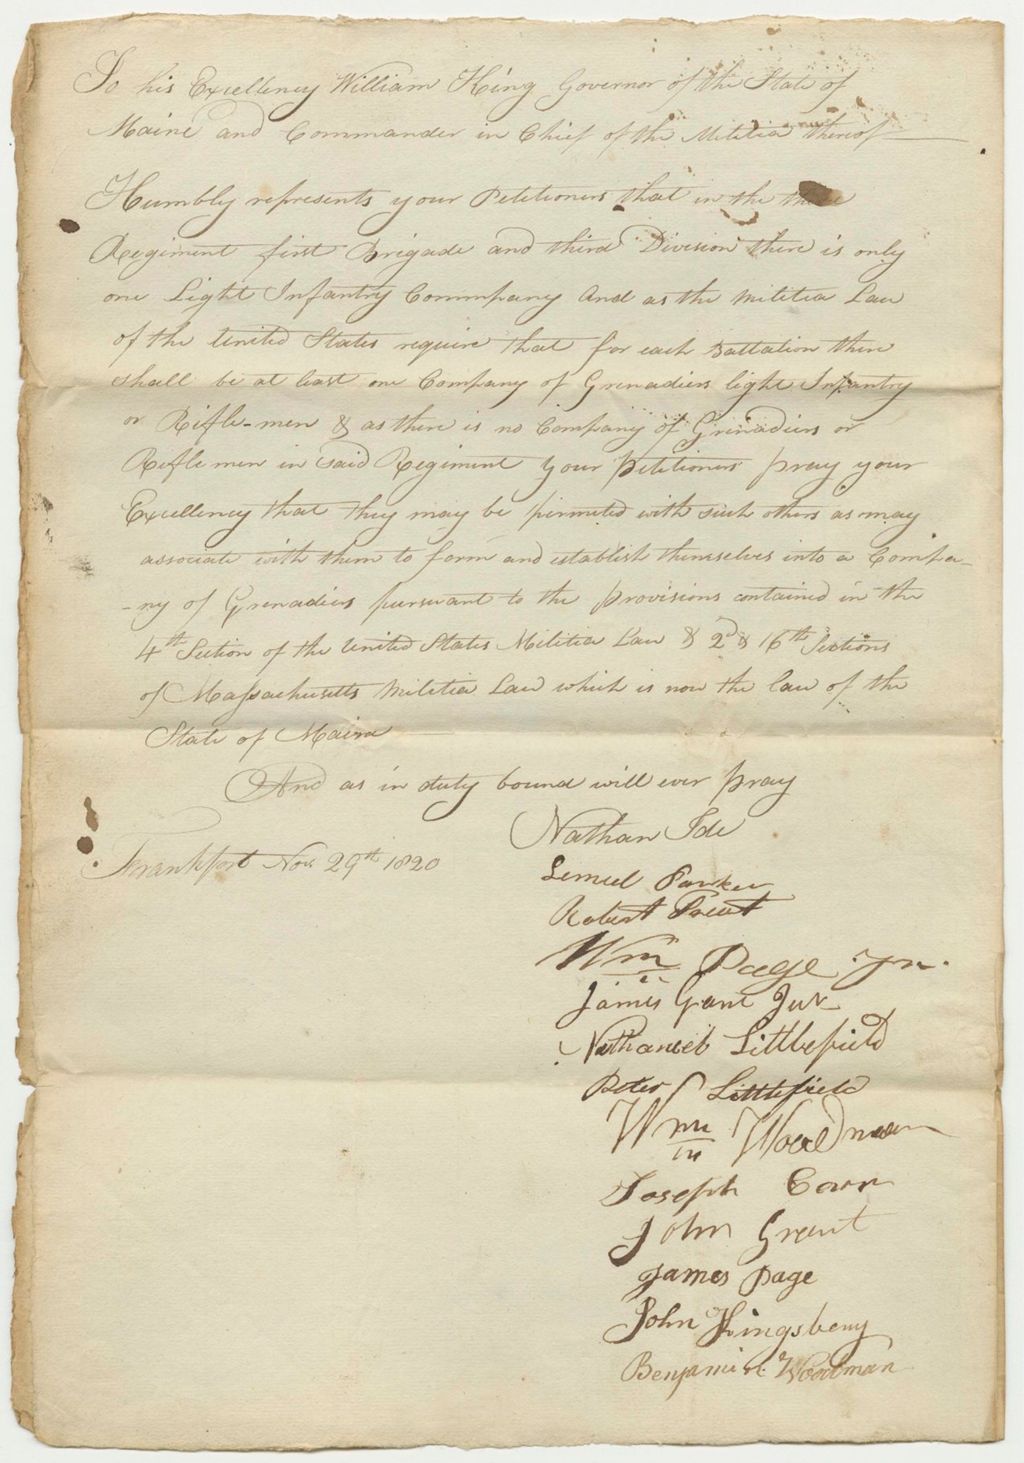 To his Excellency William King Governor of the State of
Maine and Commander in Chief of the Militia thereof
Humbly represents your Petitioners that in the
Regiment first Brigade and third Division there is only
one Light Infantry Commpany And as the Militia Law
of the United States require that for each Battalion there
shall be at least one Company of Grenadiers light Infantry
or Rifle-men & as there is no Company of Grenadiers or
Riflemen in said Regiment your petitioners pray your
Excellency that they may be permited with such others as may
associate with them to form and establish themselves into a Compa-
-ny of Grenadiers pursuant to the provisions contained in the
4th Section of the United States Militia Law & 2d & 16th Sections
of Massachusetts Militia Law which is now the law of the
State of Maine
And as in duty bound will ever pray
Nathan Ide
Frankfort Nov 29th 1820
Lemuel Parker
Robert Treat
Wm Page Jr.
James Grant Junr
Nathaniel Littlefield
Peter Littlefield
Wm Woodman
Joseph Carr
John Grant
James Page
John Kingsbery
Benjamin Woodman